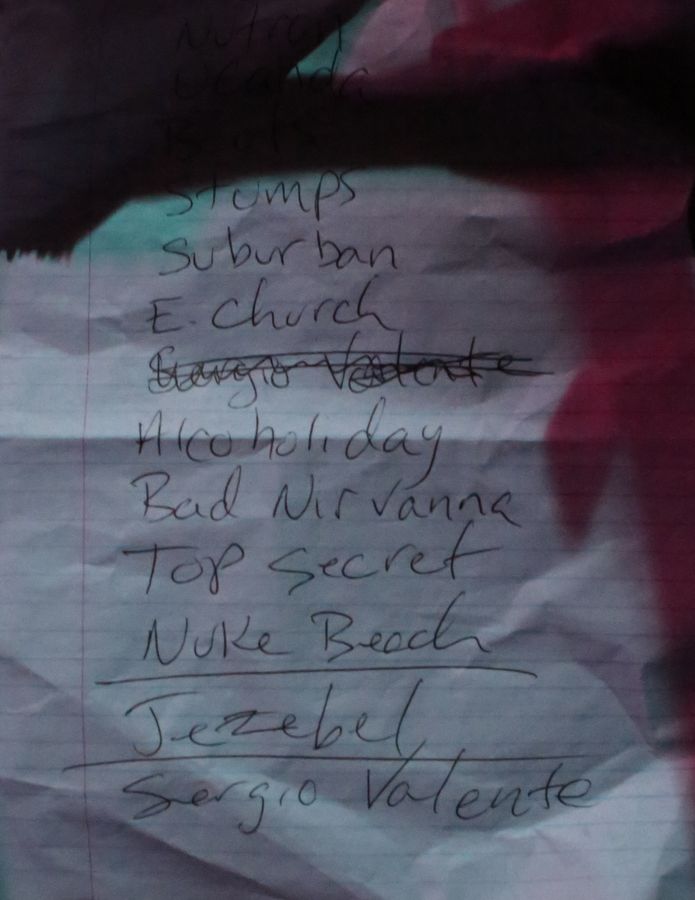 Nutron
Uganda
Stumps
Suburban
E. Church
Sergio Valente
Alcoholiday
Bad Nirvanna
Top Secret
Nuke Beach
Jezebel
Sergio Valente